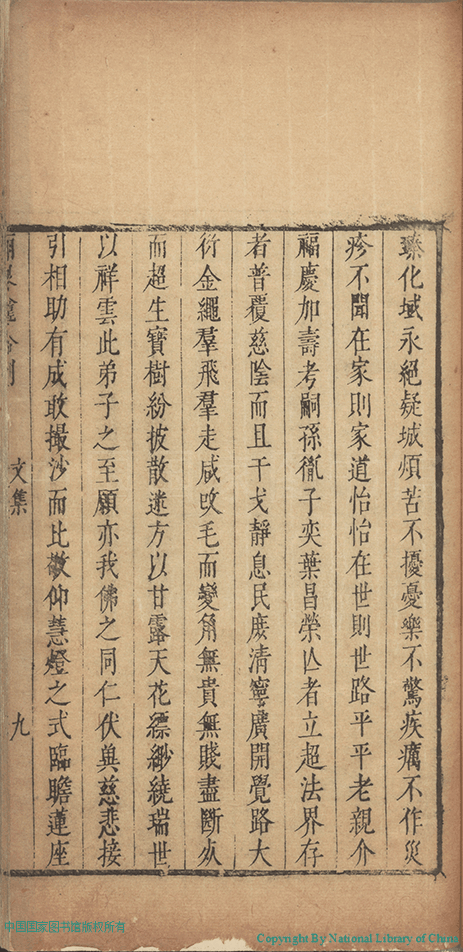 臻化域永絕疑城煩苦不擾憂樂不驚疾癘不作災
疹不聞在家則家道怡怡在世則世路平平老親介
福慶加壽考嗣孫胤子奕葉昌榮亾者立超法界存
者普覆慈陰而且干戈靜息民庶淸寧廣開覺路大
衍金繩羣飛羣走咸攺毛而變角無貴無賤盡斷
而超生寶樹紛披散迷方以甘露天花縹緲繞瑞世
以祥雲此弟子之至願亦我佛之同仁伏兾慈悲接
引相助有成敢撮沙而比敬仰慧燈之式臨瞻蓮座
文集 九
中国国家图书馆版权所有
Copyright By National Library of China